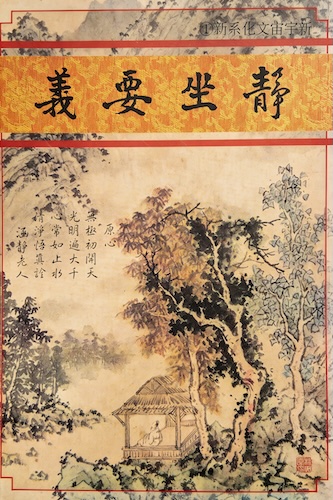 新宇宙文化系
靜坐要義
原心
無極初開天
光明遍大千
常如止水
清淨悟真詮
涵靜老人